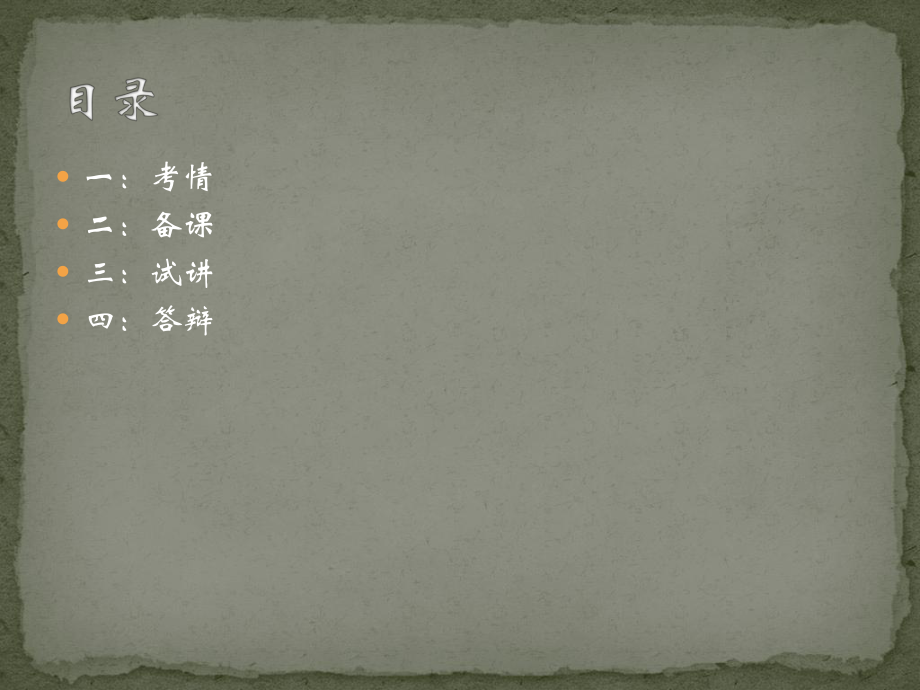 目录
一：考情
二：备课
三：试讲
四：答辩